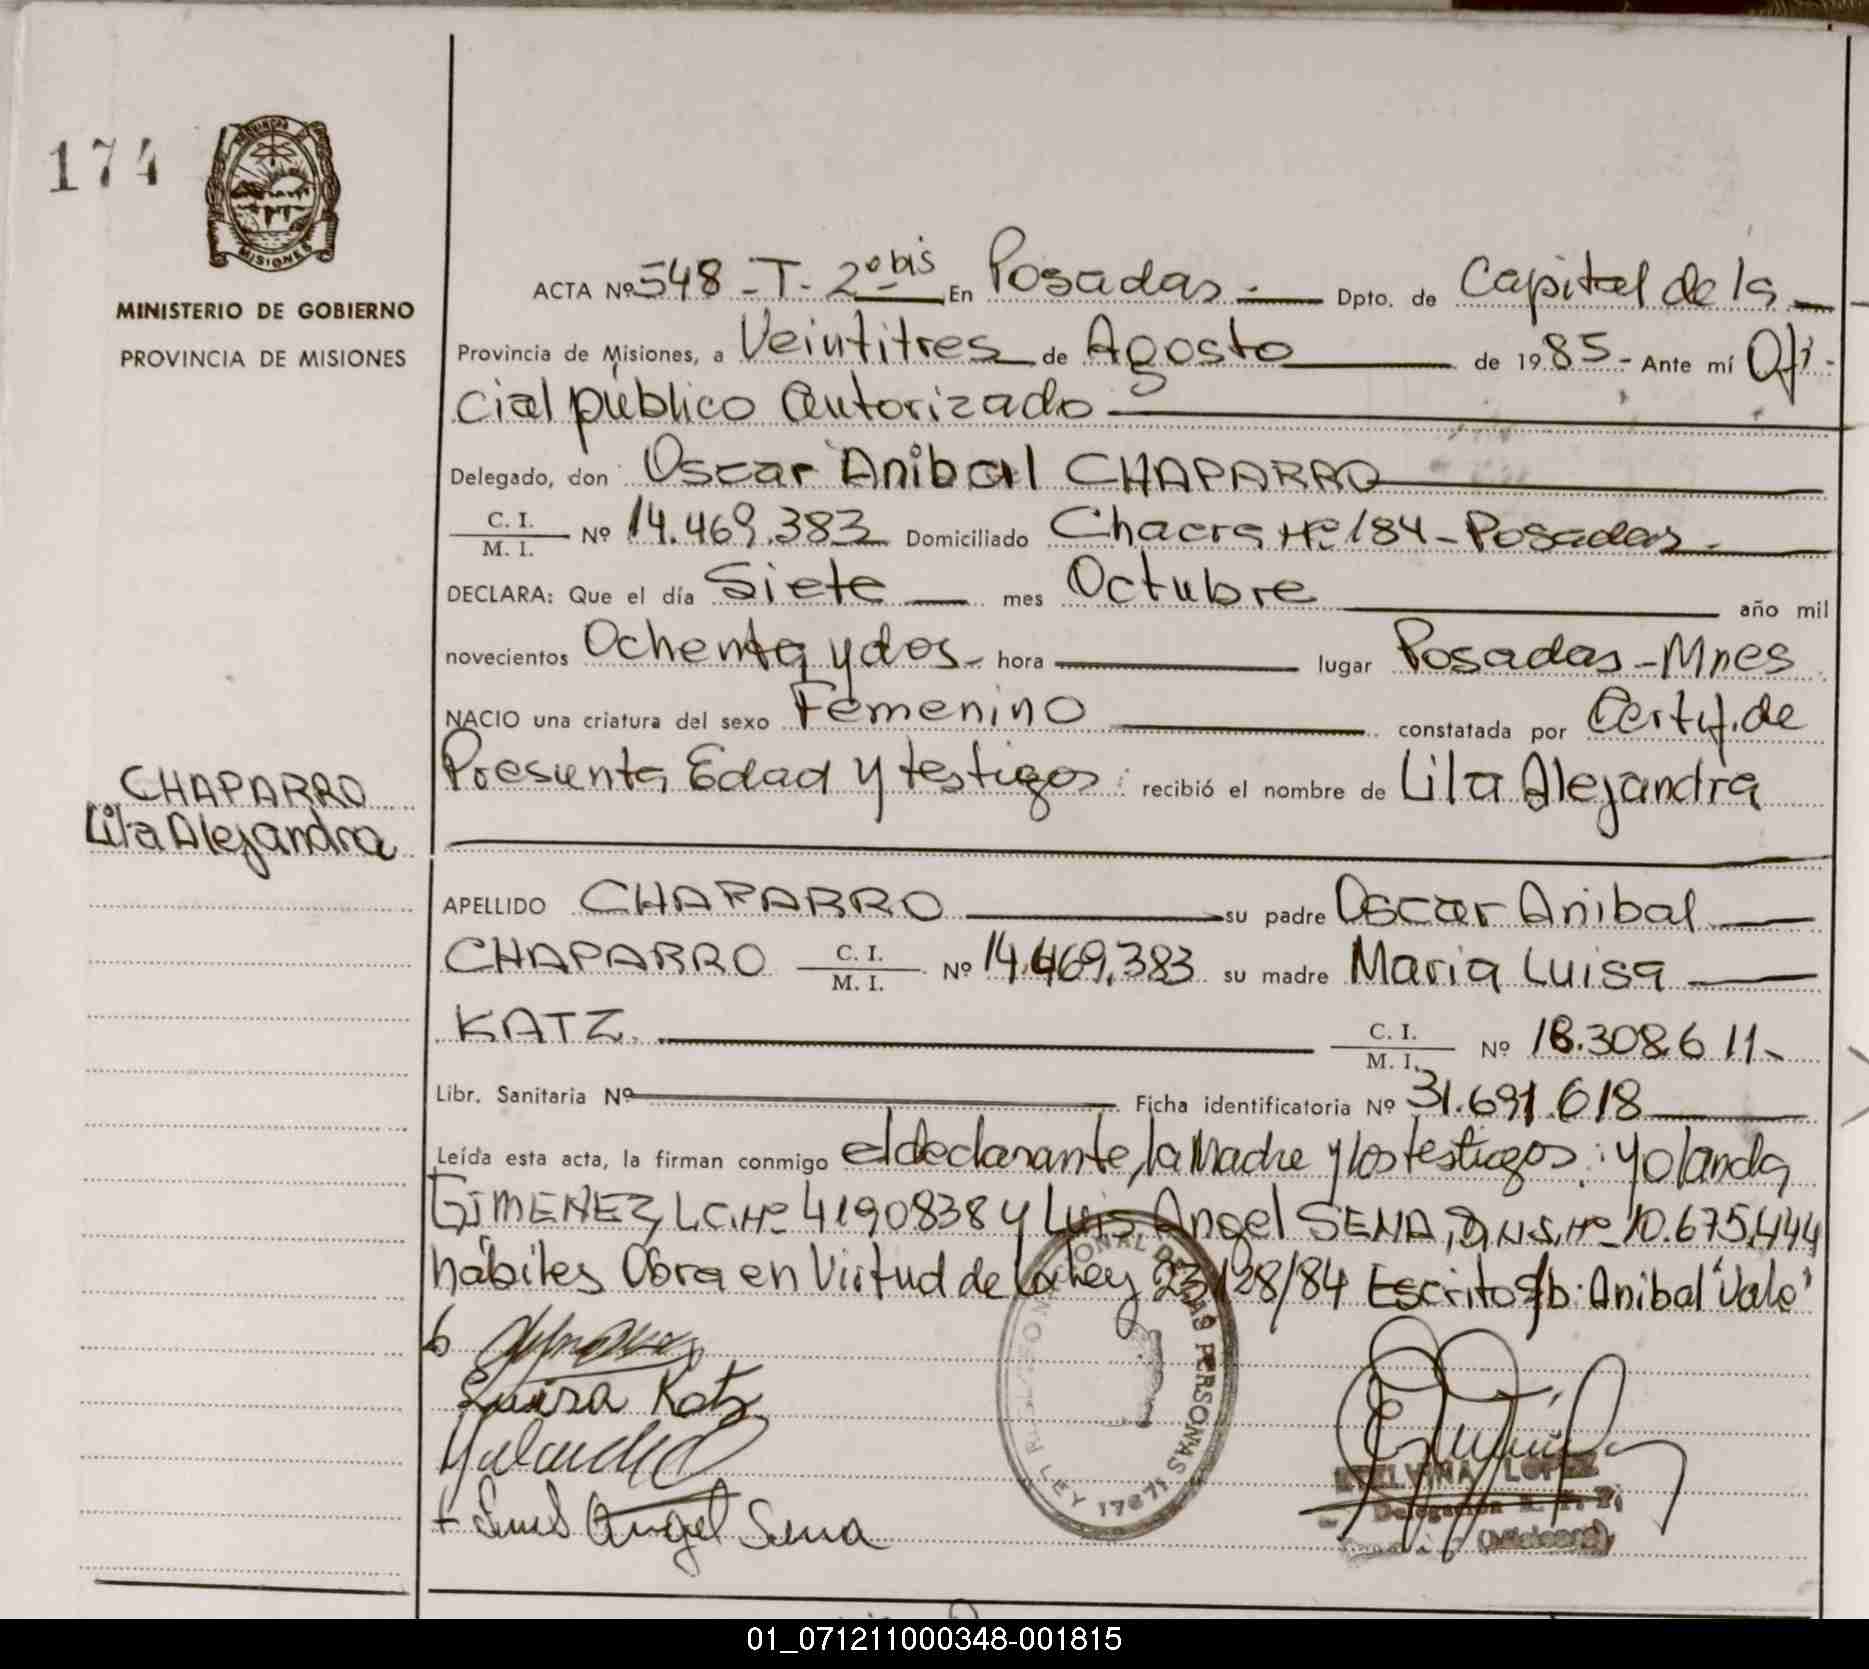 174
PROVINCIA DE
MISIONES
MINISTERIO DE GOBIERNO
PROVINCIA DE MISIONES
CHAPARRO
Lila Alejandra
ACTA Nº 548 - T - 2º bis En Posadas.- Dpto. de Capital de la
Provincia de Misiones, a Veintitres de Agosto de 1985.- Ante mí Ofi-
cial público Autorizado
Delegado, don Oscar Anibal CHAPARRO
C. I. / M. I. Nº 14.469.383 Domiciliado Chacra Nº 184 - Posadas.
DECLARA: Que el día Siete mes Octubre año mil
novecientos Ochenta y dos - hora lugar Posadas - Mnes
NACIO una criatura del sexo Femenino constatada por Certif. de
Presunta Edad y testigos: recibió el nombre de Lila Alejandra
APELLIDO CHAPARRO su padre Oscar Anibal
CHAPARRO C. I. / M. I. Nº 14.469.383 su madre Maria Luisa
KATZ. C. I. / M. I. Nº 18.308.611.
Libr. Sanitaria Nº Ficha identificatoria Nº 31.691.618
Leída esta acta, la firman conmigo el declarante, la Madre y los testigos: Yolanda
GIMENEZ, L.C. Nº 4190838 y Luis Angel SENA, D.N.I. Nº 10.675.444
hábiles Obra en Virtud de la Ley 23128/84 Escrito s/b: Anibal "Vale"
Luisa Katz
Luis Angel Sena
NACIONAL DE LAS PERSONAS
LEY 17671
LOPEZ
Delegación
(Misiones)
01_071211000348-001815